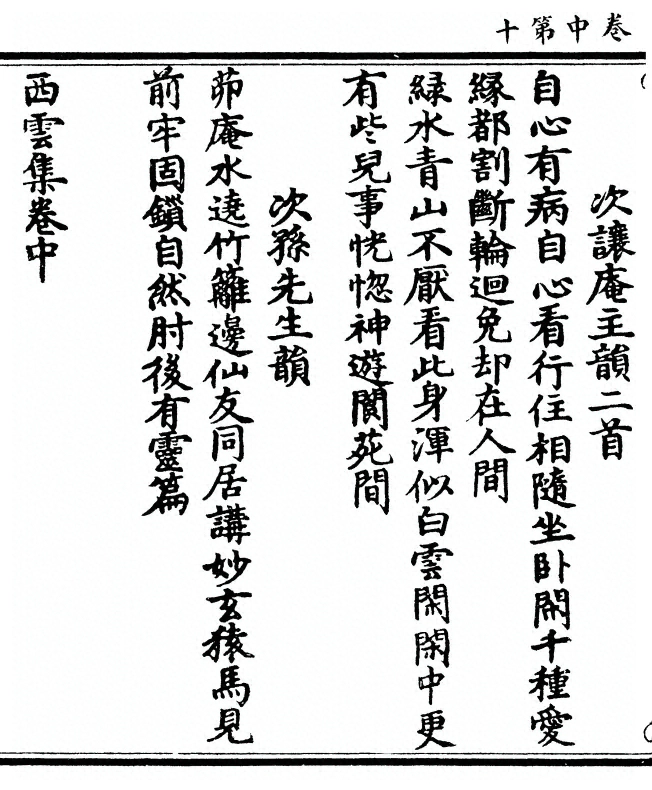 卷中第十
次讓庵主韻二首
自心有病自心看行住相隨坐臥閑千種愛
緣都割斷輪迴免却在人間
綠水青山不厭看此身渾似白雲閑閑中更
有些兒事恍惚神遊閬苑間
次孫先生韻
茆庵水遶竹籬邊仙友同居講妙玄猿馬見
前牢固鎖自然肘後有靈篇
西雲集卷中